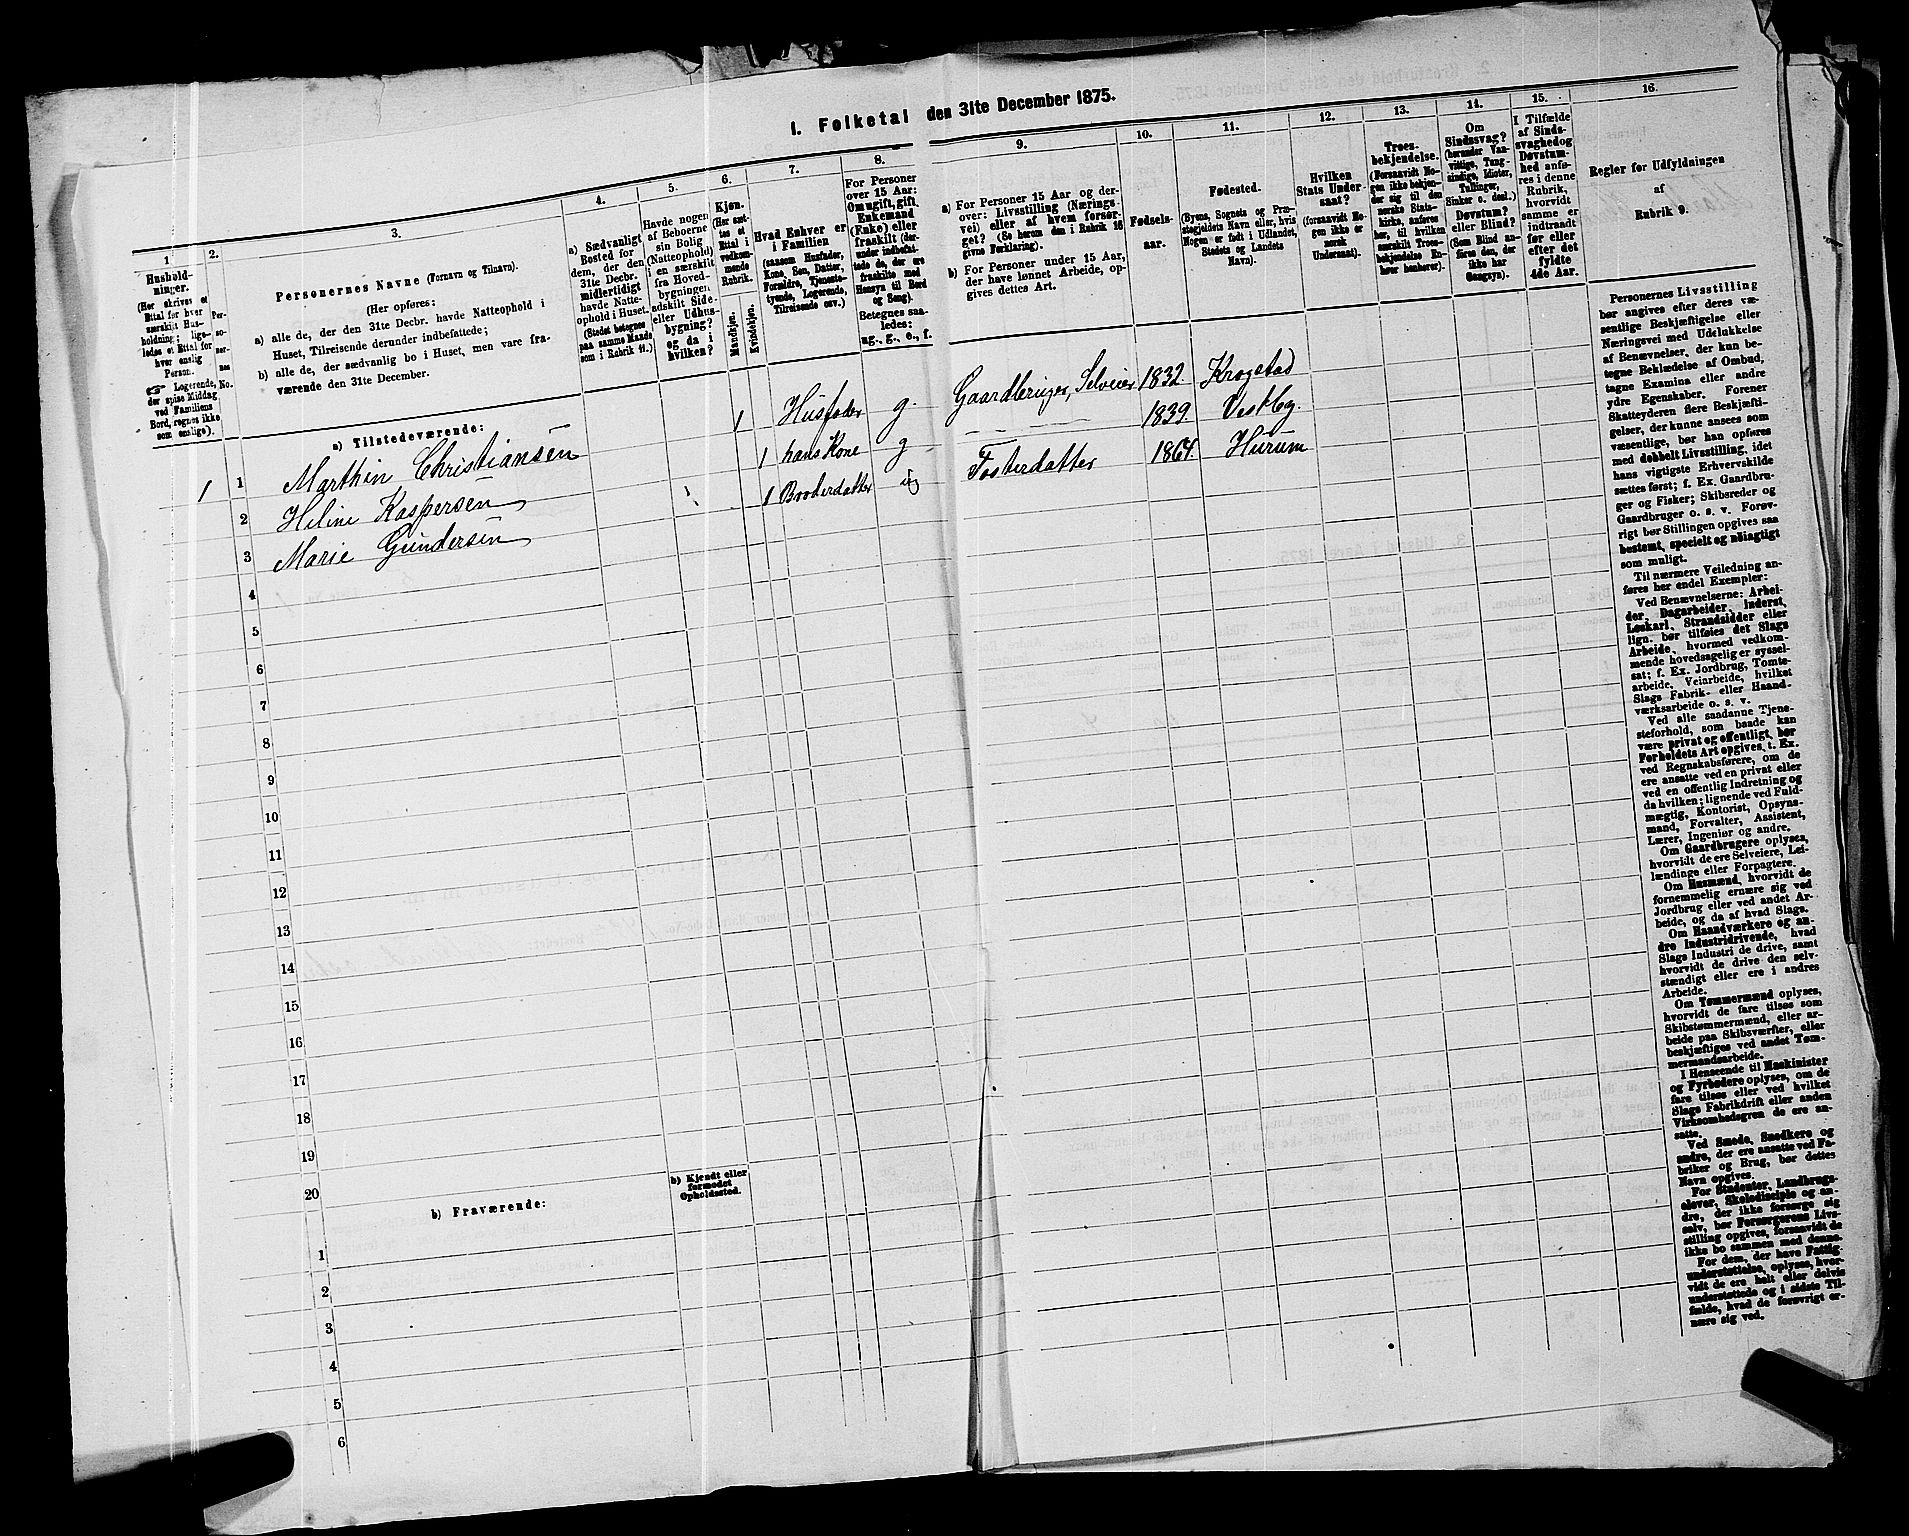 I. Folketal den 31te December 1875.
1
Hushold-
ninger.
(Her skrives et
Ettal for hver
særskilt Hus-
holdning; lige-
ledes et Ettal for
hver enslig
Person.
☞ Logerende,
der spise Middag
ved Familiens
Bord, regnes ikke
som enslige).
2.
Per-
so-
ner-
nes
No.
3.
Personernes Navne (Fornavn og Tilnavn).
(Her opføres:
a) alle de, der den 31te Decbr. havde Natteophold i
Huset, Tilreisende derunder indbefattede;
b) alle de, der sædvanlig bo i Huset, men vare fra-
værende den 31te December.
4.
a) Sædvanligt
Bosted for
dem, der den
31te Decbr.
midlertidigt
havde Natte-
ophold i Huset.
(Stedet betegnes
paa samme Maade
som i Rubrik 11.)
5.
Havde nogen
af Beboerne
sin Bolig
(Natteophold)
i en særskilt
fra Hoved-
bygningen
adskilt Side-
eller Udhus-
bygning?
og da i
hvilken?
6.
Kjøn.
(Her sæt-
tes et
Ettal i
vedkom-
mende
Rubrik.
Mandkjøn.
Kvindekjøn.
7.
Hvad Enhver er
i Familien
(saasom Husfader,
Kone, Søn, Datter,
Forældre, Tjeneste-
tyende, Logerende,
Tilreisende osv.)
8.
For Personer
over 15 Aar:
Om ugift, gift,
Enkemand
(Enke) eller
fraskilt (der-
under indbefat-
tede de, der ere
fraskilte med
Hensyn til Bord
og Seng).
Betegnes saa-
ledes:
ug., g., e., f.
9.
a) For Personer 15 Aar og der-
over: Livsstilling (Nærings-
vei) eller af hvem forsør-
get? (Se herom den i Rubrik 16
givne Forklaring).
b) For Personer under 15 Aar,
der have lønnet Arbeide, op-
gives dettes Art.
10.
Fødsels-
aar.
11.
Fødested.
(Byens, Sognets og Præ-
stegjeldets Navn eller, hvis
Nogen er født i Udlandet,
Stedets og Landets
Navn).
12.
Hvilken
Stats Under-
saat?
(forsaavidt No-
gen ikke er
norsk
Undersaat).
13.
Troes-
bekjendelse.
(Forsaavidt No-
gen ikke bekjen-
der sig til den
norske Stats-
kirke, anføres
her, til hvilken
særskilt Troes-
bekjendelse En-
hver henhører).
14.
Om
Sindssvag?
(herunder Van-
vittige, Tung-
sindige, Idioter,
Tullinger,
Sinker o. desl.)
Døvstum?
eller Blind?
(Som Blind an-
føres den, der
ikke har
Gangsyn).
15.
I Tilfælde
af Sinds-
svaghed og
Døvstum-
hed anfø-
res i denne
Rubrik,
hvorvidt
samme er
indtraadt
før eller
efter det
fyldte
4de Aar.
16.
Regler for Udfyldningen
af
Rubrik 9.
a) Tilstedeværende:
1 1 Marthin Christiansen 1 Husfader g. Gaardbruger, Selveier 1832. Krogstad
2 Heline Kaspersen 1 hans Kone g 1839. Vestby.
3 Marie Gundersen 1 Broderdatter ug Fosterdatter 1864. Hurum
4
5
6
7
8
9
10
11
12
13
14
15
16
17
18
19
20
b) Fraværende:
b) Kjendt eller
formodet
Opholdssted.
1
2
3
4
5
6
Personernes Livsstilling
bør angives efter deres væ-
sentlige Beskjæftigelse eller
Næringsvei med Udelukkelse
af Benævnelser, der kun be-
tegne Beklædelse af Ombud,
tagne Examina eller andre
ydre Egenskaber. Forener
Skatteyderen flere Beskjæfti-
gelser, der kunne ansees som
væsentlige, bør han opføres
med dobbelt Livsstilling, idet
hans vigtigste Erhvervskilde
sættes først; f. Ex. Gaardbru-
ger og Fisker; Skibsreder og
Gaardbruger o. s. v. Forøv-
rigt bør Stillingen opgives saa
bestemt, specielt og nöiagtigt
som muligt.
Til nærmere Veiledning an-
føres her endel Exempler:
Ved Benævnelserne: Arbei-
der, Dagarbeider, Inderst,
Løskarl, Strandsidder eller
lign. bør tilføies det Slags
Arbeide, hvormed vedkom-
mende hovedsagelig er syssel-
sat; f. Ex. Jordbrug, Tomte-
arbeide, Veiarbeide, hvilket
Slags Fabrik- eller Haand-
værksarbeide o. s. v.
Ved alle saadanne Tjene-
steforhold, som baade kan
være privat og offentligt, bør
Forholdets Art opgives, t. Ex.
ved Regnskabsførere, om de
ere ansatte ved en privat eller
ved en offentlig Indretning og
da hvilken; lignende ved Fuld-
mægtig, Kontorist, Opsyns-
mand, Forvalter, Assistent,
Lærer, Ingeniør og andre.
Om Gaardbrugere oplyses,
hvorvidt de ere Selveiere, Lei-
lændinge eller Forpagtere.
Om Husmænd, hvorvidt de
fornemmelig ernære sig ved
Jordbrug eller ved andet Ar-
beide, og da af hvad Slags.
Om Haandværkere og an-
dre Industridrivende, hvad
Slags Industri de drive, samt
hvorvidt de drive den selv-
stændigt eller ere i andres
Arbeide.
Om Tømmermænd oplyses,
hvorvidt de fare tilsøs som
Skibstømmermænd, eller ar-
beide paa Skibsværfter, eller
beskjæftiges ved andet Tøm-
mermandsarbeide.
I Henseende til Maskinister
og Fyrbødere oplyses, om de
fare tilsøs eller ved hvilket
Slags Fabrikdrift eller anden
Virksomhedsgren de ere an-
satte.
Ved Smede, Snedkere og
andre, der ere ansatte ved Fa-
briker og Brug, bør dettes
Navn opgives.
For Studenter, Landbrugs-
elever, Skoledisciple og an-
dre, der ikke forsørge sig
selv, bør Forsørgerens Livs-
stilling opgives, forsaavidt de
ikke bo sammen med denne.
For dem, der have Fattig-
understøttelse, oplyses, hvor-
vidt de ere helt eller delvis
understøttede og i sidste Til-
fælde, hvad de forøvrigt er-
nære sig ved.